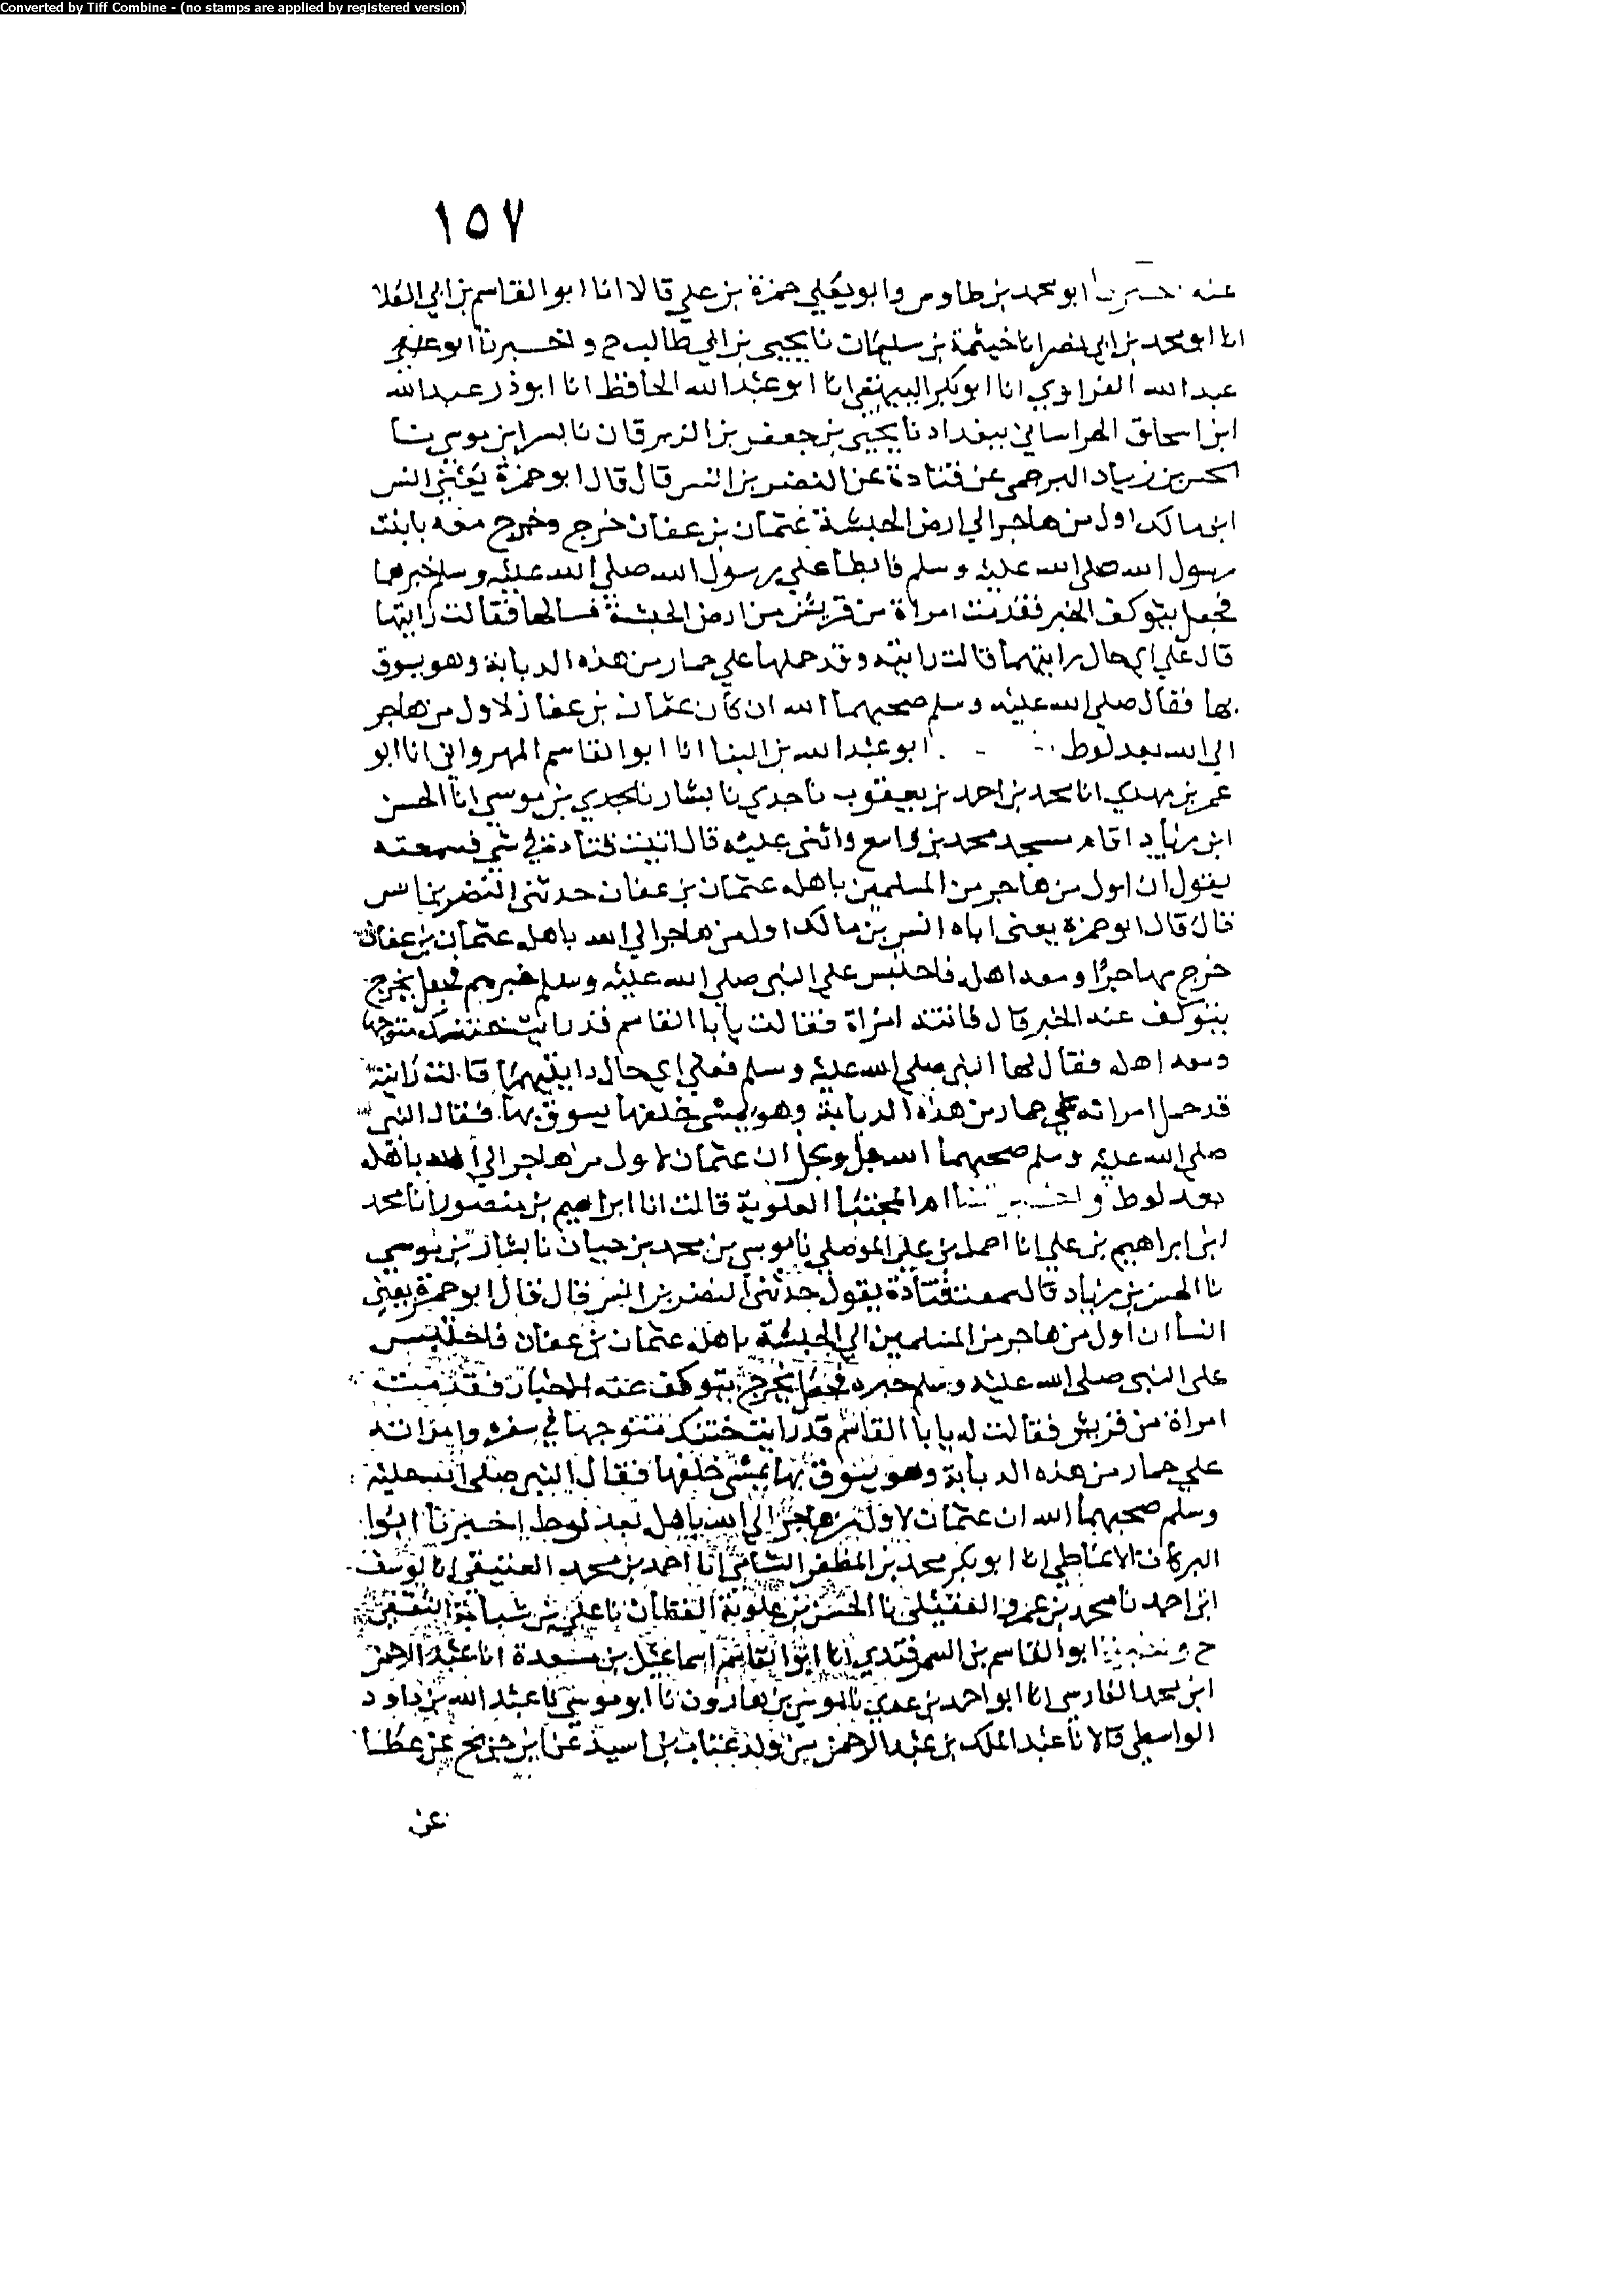 Converted by Tiff Combine - (no stamps are applied by registered version)
١٥٧
عنه ابو محمد بن طاوس وابو يعلي حمزة بن علي قالا انا ابو القاسم بن ابي العلا
انا ابو محمد بن ابي نصر انا خيثمة بن سليمان نا يحيى بن ابي طالب ح واخبرنا ابو
عبد الله الفراوي انا ابو بكر البيهقي انا ابو عبد الله الحافظ انا ابو ذر عبد الله
ابن اسحاق الخراساني ببغداد نا يحيى بن جعفر بن الزبرقان نا بسر بن موسى نا
الحسن بن زياد البرجمي عن قتادة عن النضر بن انس قال قال ابو حمزة يعني انس
ابن مالك اول من هاجر الى ارض الحبشة عثمان بن عفان خرج وخرج معه بابنت
رسول الله صلى الله عليه وسلم فابطا علي رسول الله صلى الله عليه وسلم خبرهما
فجعل يتوكف الخبر فقدمت امراة من قريش من ارض الحبشة فسالها فقالت رايتها
قال علي اي حال رايتهما قالت رايته وقد حملها علي حمار من هذه الدبابة وهو يسوق
بها فقال صلى الله عليه وسلم صحبهما الله ان كان عثمان بن عفان لاول من هاجر
الى الله بعد لوط ابو عبد الله بن البنا انا ابو القاسم المهرواني انا ابو
عمر بن مهدي انا محمد بن احمد بن يعقوب نا جدي نا بشار بن موسى انا الحسن
ابن زياد امام مسجد محمد بن واسع واثنى عليه قال اتيت قتادة في شي فسمعته
يقول ان اول من هاجر من المسلمين باهله عثمان بن عفان حدثني النضر بن انس
قال قال ابو حمزة يعني اباه انس بن مالك اول من هاجر الى الله باهله عثمان بن عفان
خرج مهاجرا ومعه اهله فاحتبس علي النبي صلى الله عليه وسلم خبرهم فجعل يخرج
يتوكف عنه الخبر قال فاتته امراة فقالت يا ابا القاسم قد رايت ختنك متوجها
ومعه اهله فقال لها النبي صلى الله عليه وسلم فعلي اي حال رايتهما قالت رايته
قد حمل امراته علي حمار من هذه الدبابة وهو يمشي خلفها يسوق بها فقال النبي
صلى الله عليه وسلم صحبهما الله عز وجل ان عثمان لاول من هاجر الى الله باهله
بعد لوط ام المجتبا العلوية قالت انا ابراهيم بن منصور انا محمد
ابن ابراهيم بن علي انا احمد بن علي الموصلي نا موسى بن محمد بن حيان نا بشار بن موسى
نا الحسن بن زياد قال سمعت قتادة يقول حدثني النضر بن انس قال قال ابو حمزة يعني
انسا ان اول من هاجر من المسلمين الى الحبشة باهله عثمان بن عفان فاحتبس
على النبي صلى الله عليه وسلم خبره فجعل يخرج يتوكف عنه الاخبار فقدمت
امراة من قريش فقالت له يا ابا القاسم قد رايت ختنك متوجها في سفره وامراته
علي حمار من هذه الدبابة وهو يسوق بها يمشي خلفها فقال النبي صلى الله عليه
وسلم صحبهما الله ان عثمان لاول من هاجر الى الله باهله بعد لوط اخبرنا ابوا
البركات الانماطي انا ابو بكر محمد بن المظفر الشامي انا احمد بن محمد العتيقي انا يوسف
ابن احمد نا محمد بن عمرو العقيلي نا الحسن بن علوية القطان نا علي بن
ح ابو القاسم بن السمرقندي انا ابو القاسم اسماعيل بن مسعدة انا عبد الرحمن
ابن محمد الفارسي انا ابو احمد بن عدي نا موسى بن هارون نا ابو موسى نا عبد الله بن داود
الواسطي قالا نا عبد الملك بن عبد الرحمن من ولد عتاب بن اسيد عن ابن جريج عن عطا
عن